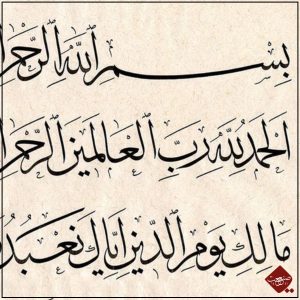 بِسْمِ اللهِ الرَّحْمٰ
اَلْحَمْدُ لِلّٰهِ رَبِّ الْعَالَمِينَ الرَّحْمٰ
مَالِكِ يَوْمِ الدِّينِ اِيَّاكَ نَعْبُدُ